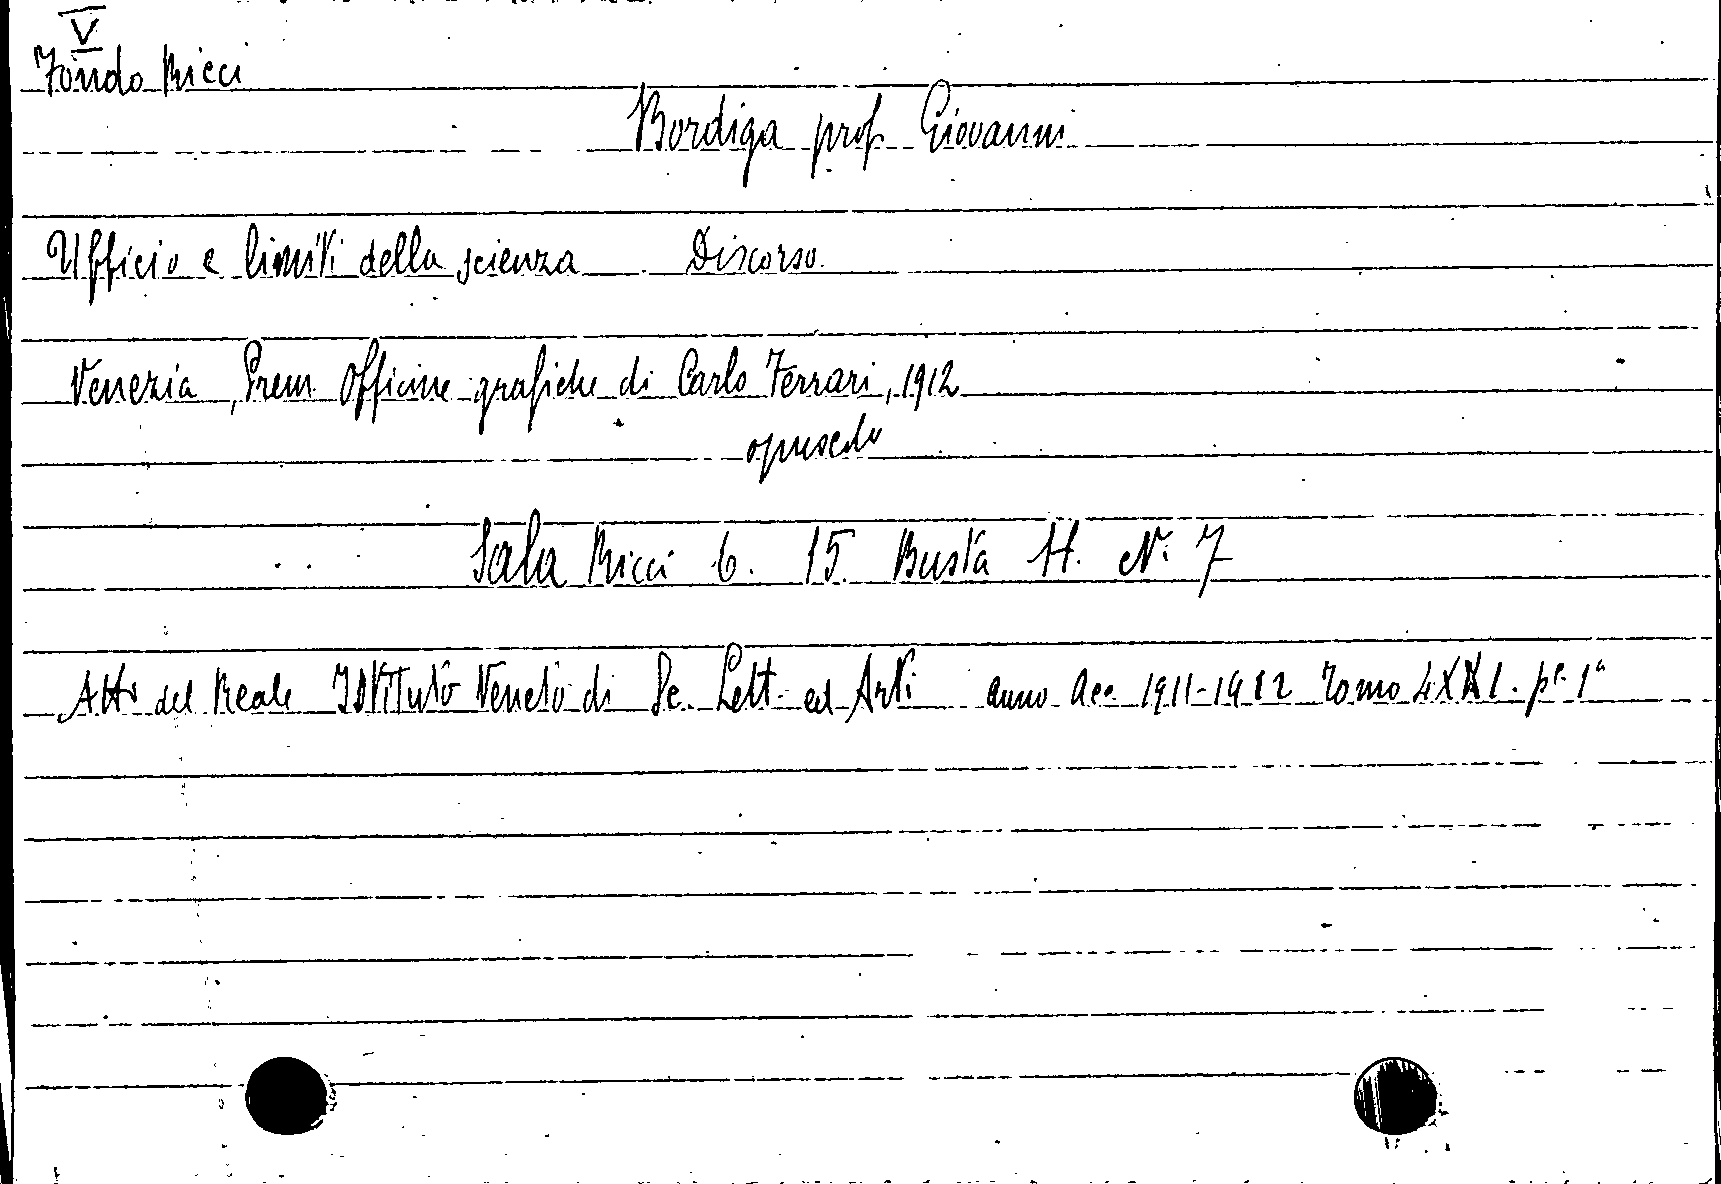 V
Fondo Ricci
Bordiga prof. Giovanni
Ufficio e limiti della scienza Discorso.
Venezia, Prem. Officine grafiche di Carlo Ferrari, 1912
opuscolo
Sala Ricci 6. 15. Busta H. N. 7
Atti del Reale Istituto Veneto di Sc. Lett. ed Arti anno acc. 1911-1912 Tomo LXXI. pt. 1ª